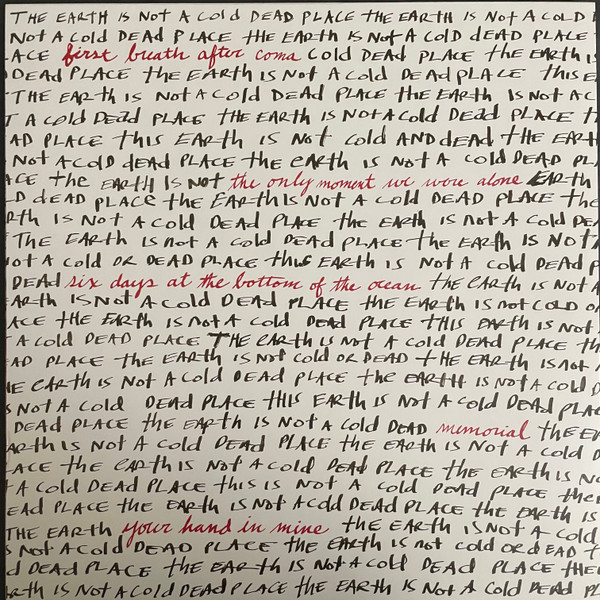 THE EARTH IS NOT A COLD DEAD PLACE THE EARTH IS NOT A COLD
NOT A COLD DEAD PLACE THE EARTH IS NOT A COLD DEAD PLACE
ACE first breath after coma COLD DEAD PLACE THE EARTH IS
DEAD PLACE THE EARTH IS NOT A COLD DEAD PLACE THIS E
THE EARTH IS NOT A COLD DEAD PLACE THE EARTH IS NOT A C
T A COLD DEAD PLACE THE EARTH IS NOT A COLD DEAD PLACE T
AD PLACE THIS EARTH IS NOT COLD AND DEAD THE EART
NOT A COLD DEAD PLACE THE EARTH IS NOT A COLD DEAD PL
ACE THE EARTH IS NOT the only moment we were alone EARTH
D DEAD PLACE THE EARTH IS NOT A COLD DEAD PLACE THE
RTH IS NOT A COLD DEAD PLACE THE EARTH IS NOT A COLD DEA
THE EARTH IS NOT A COLD DEAD PLACE THE EARTH IS NOT
NOT A COLD OR DEAD PLACE THIS EARTH IS NOT A COLD DEAD P
DEAD six days at the bottom of the ocean THE EARTH IS NOT A
EARTH IS NOT A COLD DEAD PLACE THE EARTH IS NOT COLD O
ACE THE EARTH IS NOT A COLD DEAD PLACE THIS EARTH IS NOT
A COLD DEAD PLACE THE EARTH IS NOT A COLD DEAD PLACE TH
AD PLACE THE EARTH IS NOT COLD OR DEAD THE EARTH IS NOT
HE EARTH IS NOT A COLD DEAD PLACE THE EARTH IS NOT A COLD D
S NOT A COLD DEAD PLACE THIS EARTH IS NOT A COLD DEAD PLAC
DEAD PLACE THE EARTH IS NOT A COLD DEAD memorial THE EA
ARTH IS NOT A COLD DEAD PLACE THE EARTH IS NOT A COLD D
ACE THE EARTH IS NOT A COLD DEAD PLACE THE EARTH IS NO
A COLD DEAD PLACE THIS IS NOT A COLD DEAD PLACE THE
EAD PLACE THE EARTH IS NOT A COLD DEAD PLACE THE EARTH IS
THE EARTH your hand in mine THE EARTH IS NOT A COLD
S NOT A COLD DEAD PLACE THE EARTH IS NOT COLD OR DEAD T
D DEAD PLACE THE EARTH IS NOT A COLD DEAD PLACE THE
RTH IS NOT A COLD DEAD PLACE THE EARTH IS NOT A COLD DEAD PL